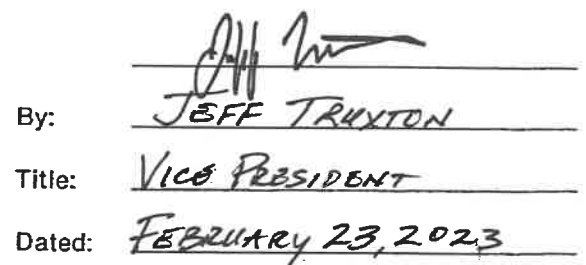 Jeff Truxton
By: JEFF TRUXTON
Title: VICE PRESIDENT
Dated: FEBRUARY 23, 2023